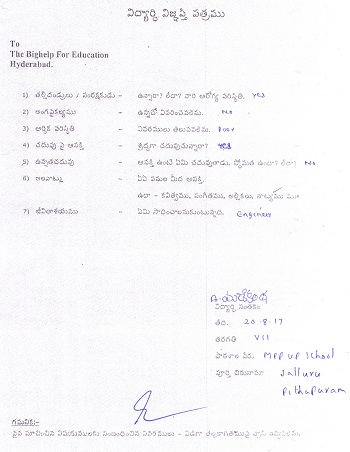 విద్యార్థి విజ్ఞప్తి పత్రము
To
The Bighelp For Education
Hyderabad.
1) తల్లిదండ్రులు / సంరక్షకుడు - ఉన్నారా? లేదా? వారి ఆరోగ్య పరిస్థితి. YES
2) అంగవైకల్యము - ఉన్నదో వివరించవలెను. No
3) ఆర్థిక పరిస్థితి - వివరములు తెలుపవలెను. Poor
4) చదువు పై ఆసక్తి - శ్రద్ధగా చదువుచున్నారా? YES
5) ఉన్నతచదువు - ఆసక్తి ఉంటే ఏమి చదువుతాడు. స్తోమత ఉందా? లేదా? No
6) అలవాట్లు - ఏఏ పనుల మీద ఆసక్తి.
ఉదా - కవిత్వము, సంగీతము, అల్లికలు, నాట్యము
7) జీవితాశయము - ఏమి సాధించాలనుకుంటున్నది. Engineer
విద్యార్థి సంతకం
తేది. 20-8-17
తరగతి VII
పాఠశాల పేరు. MPP UP School
పూర్తి చిరునామా Jalluru
Pithapuram
గమనిక:-
పైన సూచించిన విషయములకు సంబంధించిన వివరములు -